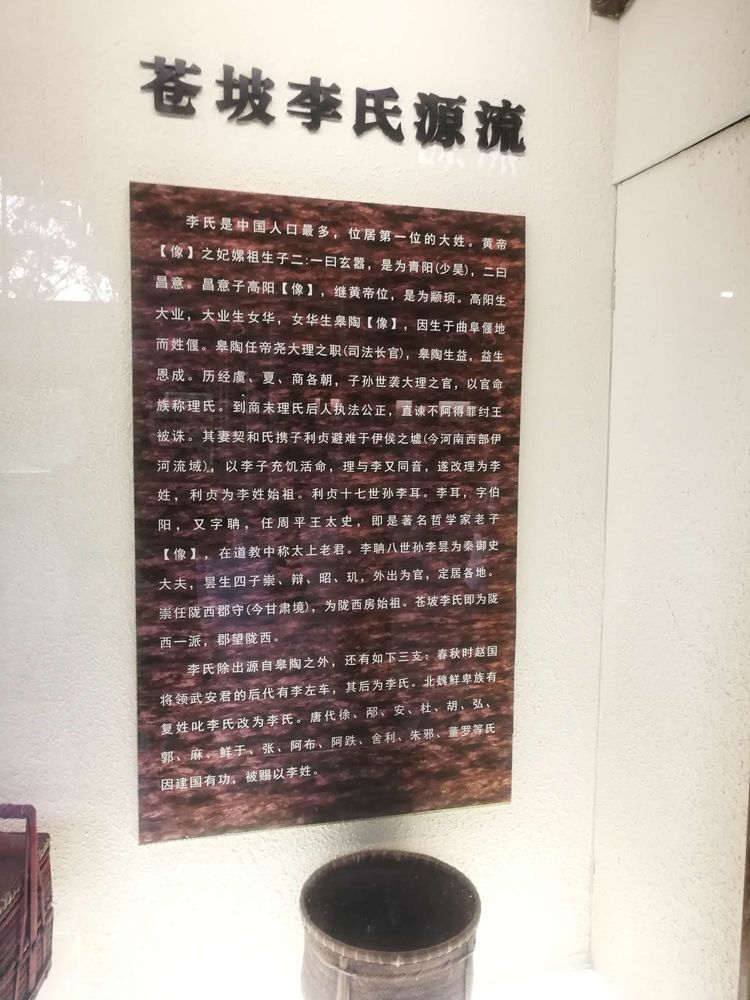 苍坡李氏源流
李氏是中国人口最多，位居第一位的大姓。黄帝
【像】之妃嫘祖生子二:一曰玄嚣，是为青阳(少昊)，二曰
昌意。昌意子高阳【像】，继黄帝位，是为颛顼。高阳生
大业，大业生女华，女华生皋陶【像】，因生于曲阜偃地
而姓偃。皋陶任帝尧大理之职(司法长官)，皋陶生益，益生
恩成。历经虞、夏、商各朝，子孙世袭大理之官，以官命
族称理氏。到商末理氏后人执法公正，直谏不阿得罪纣王
被诛。其妻契和氏携子利贞避难于伊侯之墟(今河南西部伊
河流域)，以李子充饥活命，理与李又同音，遂改理为李
姓，利贞为李姓始祖。利贞十七世孙李耳。李耳，字伯
阳，又字聃，任周平王太史，即是著名哲学家老子
【像】，在道教中称太上老君。李聃八世孙李昙为秦御史
大夫，昙生四子崇、辩、昭、玑，外出为官，定居各地。
崇任陇西郡守(今甘肃境)，为陇西房始祖。苍坡李氏即为陇
西一派，郡望陇西。
李氏除出源自皋陶之外，还有如下三支：春秋时赵国
将领武安君的后代有李左车，其后为李氏。北魏鲜卑族有
复姓叱李氏改为李氏。唐代徐、邴、安、杜、胡、弘、
郭、麻、鲜于、张、阿布、阿跌、舍利、朱邪、董罗等氏
因建国有功，被赐以李姓。